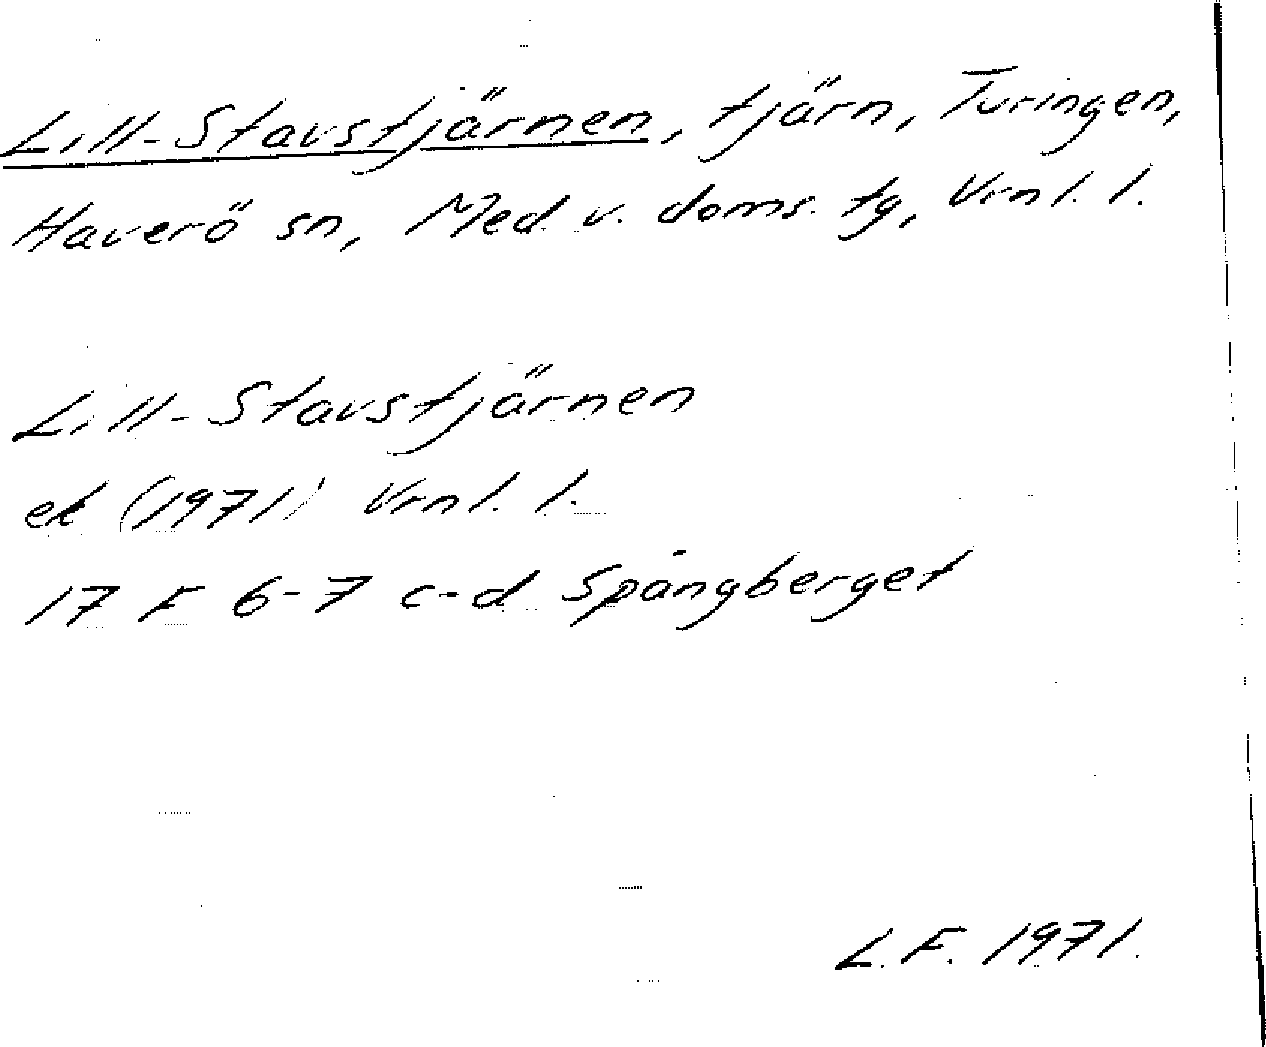 Lill-Stavstjärnen, tjärn, Turingen,
Haverö sn, Med. v. doms. tg, Vrnl. l.
Lill-Stavstjärnen
ek (1971) Vrnl. l.
17 F 6-7 c-d Spångberget
L.F. 1971.